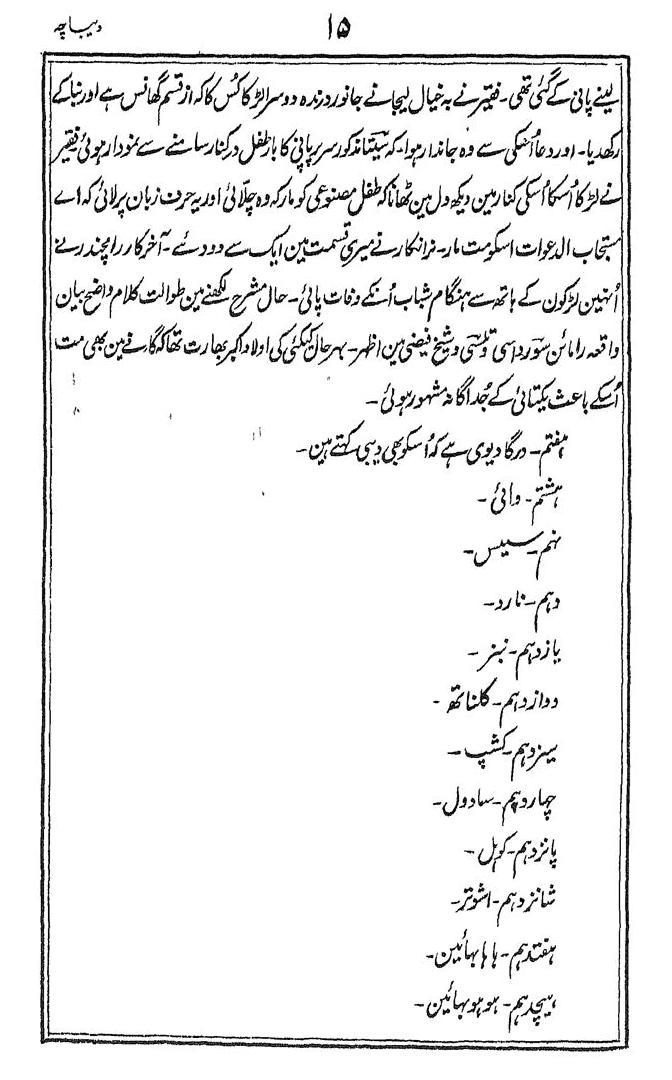 ۱۵
دیباچہ
لینے پانی کے گئی تھی۔ فقیر نے بہ خیال لیجانے جانور درندہ دوسرا لڑکا کُس کا کہ از قسم گھانس ہے اور بناکے
رکھدیا۔ اور دعا اُسکی سے وہ جاندار ہوا۔ کہ سیتا مذکور سر پر پانی کا بار طفل در کنار سامنے سے نمودار ہوئی فقیر
نے لڑکا اُسکا اُسکی کنار مین دیکھ دل مین ٹھانا کہ طفل مصنوعی کو مار کہ وہ چلّائی اور یہ حرف زبان پر لائی کہ اے
مستجاب الدعوات اسکو مت مار۔ نرانکار نے میری قسمت مین ایک سے دو دئے۔ آخر کار رامچندر نے
اُنہین لڑکون کے ہاتھ سے ہنگام شباب اُنکے وفات پائی۔ حال مشرح لکھنے مین طوالت کلام واضح بیان
واقعہ رامائن سورداسی و تلسی و شیخ فیضی مین اظہر۔ بہر حال کیکئی کی اولاد اکبر بھارت تھا کہ گانے مین بھی مت
اُسکے باعث یکتائی کے جُداگانہ مشہور ہوئی۔
ہفتم۔ درگا دیوی ہے کہ اُسکو بھی دیبی کہتے ہین۔
ہشتم۔ وائی۔
نہم۔ سیس۔
دہم۔ نارد۔
یازدہم۔
دوازدہم۔ کلناتھ۔
سیزدہم۔ کشپ۔
چہاردہم۔ سادول۔
پانزدہم۔ کوہل۔
شانزدہم۔ اشوتر۔
ہفتدہم۔ ہاہا بھائین۔
ہیچدہم۔ ہوہو بھائین۔